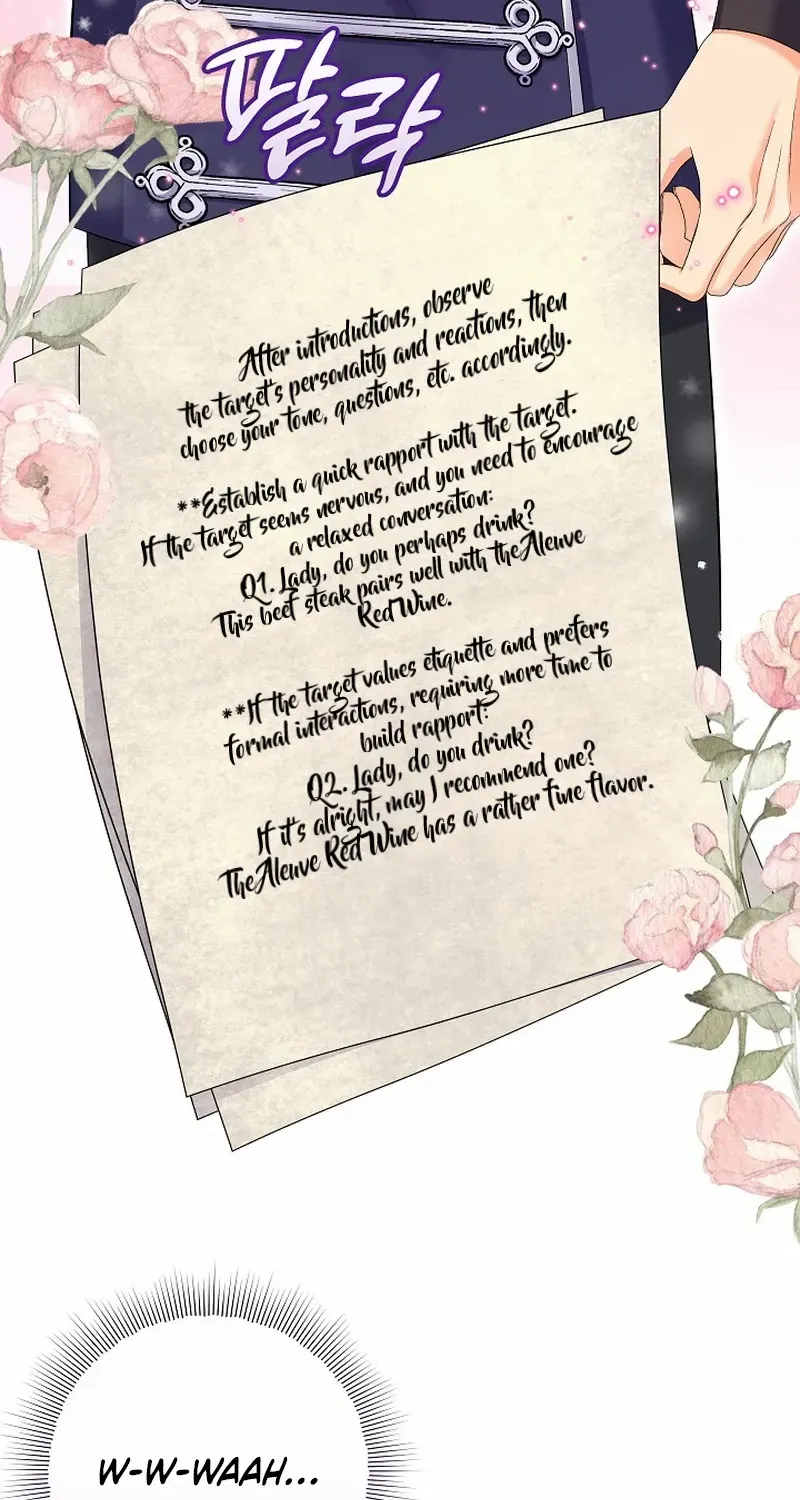 팔락
After introductions, observe
the target's personality and reactions, then
choose your tone, questions, etc. accordingly.
**Establish a quick rapport with the target.
If the target seems nervous, and you need to encourage
a relaxed conversation:
Q1. Lady, do you perhaps drink?
This beef steak pairs well with the Aleuve
Red Wine.
**If the target values etiquette and prefers
formal interactions, requiring more time to
build rapport:
Q2. Lady, do you drink?
If it's alright, may I recommend one?
The Aleuve Red Wine has a rather fine flavor.
W-W-WAAH...